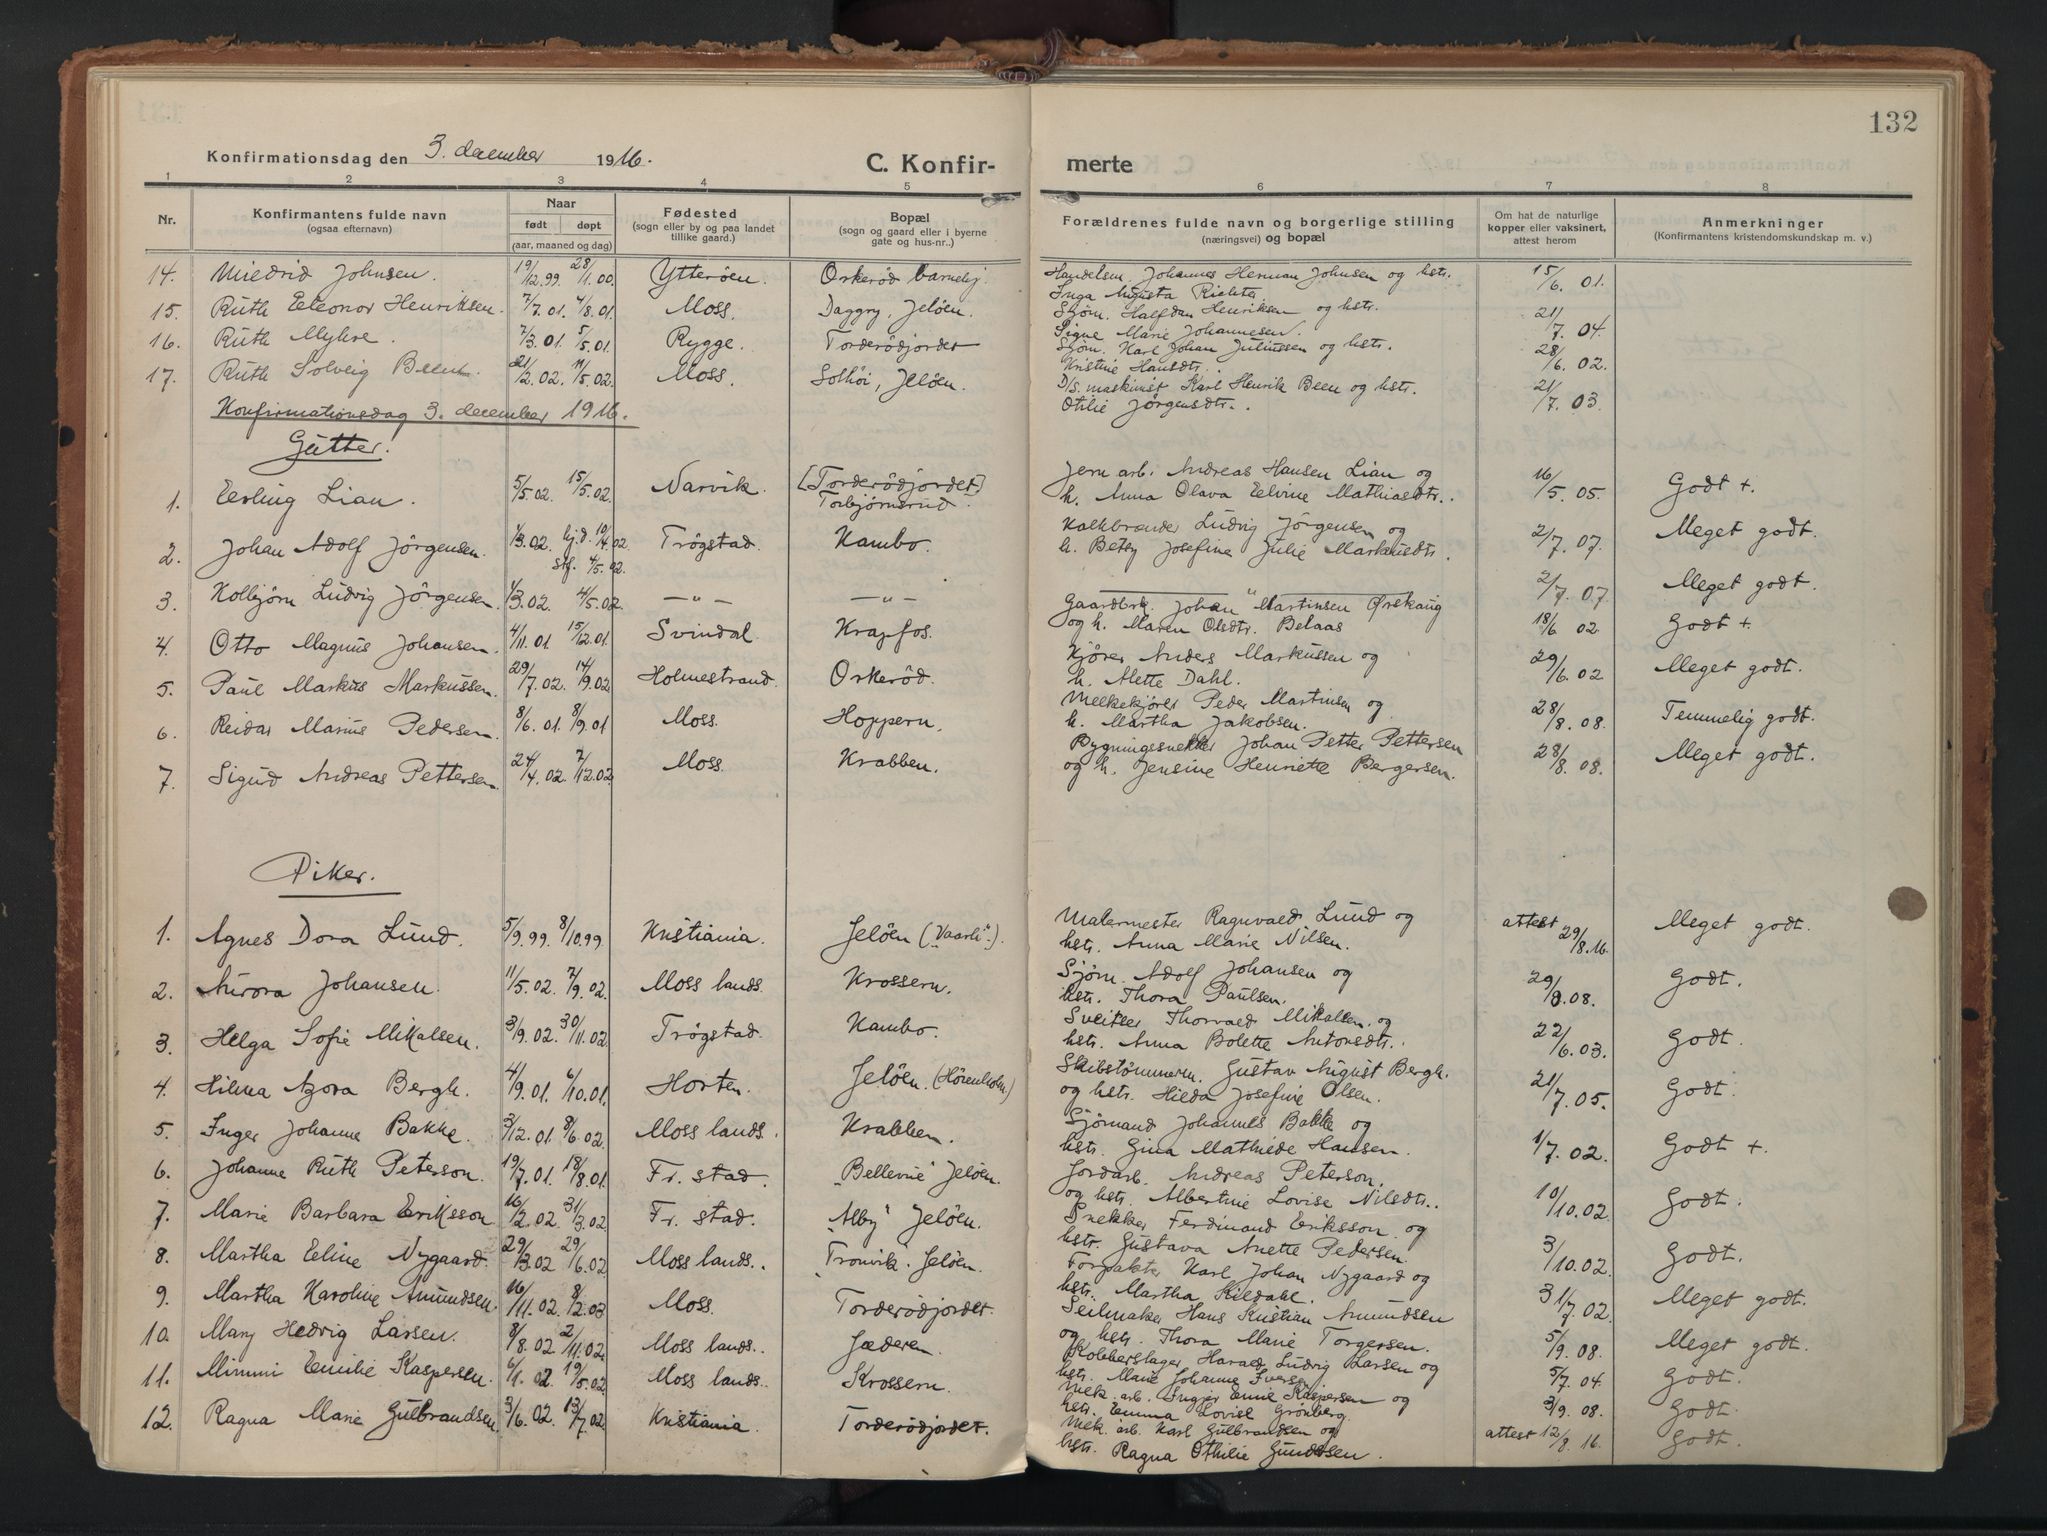 132
Konfirmationsdag den 3. december 1916.
C. Konfirmerte
1 2 3 4 5 6 7 8
Nr. | Konfirmantens fulde navn (ogsaa efternavn) | Naar født døpt (aar, maaned og dag) | Fødested (sogn eller by og paa landet tillike gaard.) | Bopæl (sogn og gaard eller i byerne gate og hus-nr..) | Forældrenes fulde navn og borgerlige stilling (næringsvei) og bopæl | Om hat de naturlige kopper eller vaksinert, attest herom | Anmerkninger (Konfirmantens kristendomskundskap m. v.)
14. Johnsen. 19/12.99 28/1.00. Ytterøen. Orkerød barnehj. Handelsm. Johannes Herman Johnsen og hstr. Inga Augusta Richter 15/6. 01.
15. Ruth Eleonor Henriksen. 7/7.01. 4/8.01. Moss. Daggry, Jeløen. Sjøm. Halfdan Henriksen og hstr. Signe Marie Johannesen. 21/7. 04.
16. Ruth Myhre. 7/3.01. 5/5.01. Rygge. Torderødjordet Sjøm. Karl Johan Juliussen og hstr. Kristine Hansdtr. 28/6. 02.
17. Ruth Solveig Been. 21/2.02. 11/5.02. Moss. Solhøi, Jeløen. D/S. maskinist Karl Henrik Been og hstr. Otilie Jørgensdtr. 21/7. 03.
Konfirmationsdag 3. december 1916.
Gutter.
1. Erling Lian. 5/5.02. 15/5.02. Narvik. [Torderødjordet] Torbjørnsrud. Jern arb. Andreas Hansen Lian og h. Anna Olava Elvine Mathiasdtr. 16/5. 05. Godt +.
2. Johan Adolf Jörgensen. 1/3.02. hj.d. 10/4.02 stf. 4/5.02. Trögstad. Kambo. Kalkbrænder Ludvig Jörgensen og h. Betsy Josefine Julie Markusdtr. 2/7. 07. Meget godt.
3. Kolbjørn Ludvig Jörgensen. 1/3.02. 4/5.02. —"— —"— —"— 2/7. 07 Meget godt.
4. Otto Magnus Johansen. 4/11.01 15/12.01. Svindal. Krapfos. Gaardbrk. Johan Martinsen Ørskaug og h. Maren Olsdtr. Belaas 18/6 02. Godt +.
5. Paul Markus Markussen. 29/7.02. 14/9.02 Holmestrand. Orkerød. Kjører Anders Markussen og h. Alette Dahl. 29/6. 02 Meget godt.
6. Reidar Marius Pedersen. 8/6.01. 8/9.01 Moss. Hoppern. Melkekjører Peder Martinsen og h. Martha Jakobsen. 28/8. 08. Temmelig godt.
7. Sigurd Andreas Pettersen. 24/4.02. 7/12.02. Moss. Krabben. Bygningssnekker Johan Petter Pettersen og h. Jensine Henriette Bergersen. 28/8. 08. Meget godt.
Piker.
1. Agnes Dora Lund. 5/9.99. 8/10.99. Kristiania. Jeløen („Vaarli"). Malermester Ragnvald Lund og hstr. Anna Marie Nilsen. attest 29/8.16. Meget godt.
2. Aurora Johansen. 11/5.02. 7/9.02. Moss lands. Krossern. Sjøm. Adolf Johansen og hstr. Thora Paulsen. 29/8.08. Godt.
3. Helga Sofie Mikalsen. 3/9.02. 30/11.02 Trögstad. Kambo. Sveitser Thorvald Mikalsen. og hstr. Anna Bolette Antonsdtr. 22/6.03. Godt.
4. Hilma Azora Bergh. 4/9.01. 6/10.01. Horten. Jeløen. (Hönenholm) Skibstömmerm. Gustav August Bergh. og hstr. Hilda Josefine Olsen. 21/7.05. Godt.
5. Inger Johanne Bakke. 3/12.01. 8/6.02. Moss lands. Krabben. Sjömand Johannes Bakke og hstr. Gina Mathilde Hansen. 1/7.02. Godt +.
6. Johanne Ruth Peterson. 19/7.01. 18/8.01. Fr. stad. „Bellevue" Jeløen. Jordarb. Andreas Peterson. og hstr. Albertine Lovise Nilsdtr. 10/10.02. Godt.
7. Marie Barbara Eriksson. 16/2.02. 31/3.02 Fr. stad. „Alby" Jeløen. Snekker Ferdinand Eriksson og hstr. Gustava Anette Pedersen. 3/10.02. Godt.
8. Martha Eline Nygaard. 29/3.02 29/6.02 Moss lands.. „Tronvik" Jeløen. Forpakter Karl Johan Nygaard og hstr. Martha Kildahl. 31/7.02. Meget godt.
9. Martha Karoline Amundsen. 16/11.02. 8/2.03 Moss. Torderødjordet. Seilmaker Hans Kristian Amundsen og hstr. Thora Marie Torgersen. 5/9.08. Meget godt.
10. Mary Hedvig Larsen. 8/8.02. 2/11.02. Moss lands.. Jæderen. Kobberslager Harald Ludvig Larsen og hstr. Marie Johanne Iversen 5/7.04. Godt.
11. Mimmi Emilie Kaspersen. 6/1.02. 19/5.02. Moss lands.. Krossern. Mek. arb. Kaspersen og hstr. Emma Lovise Grönberg. 3/9.08. Godt.
12. Ragna Marie Gulbrandsen. 3/6.02. 13/7.02. Kristiania. Torderødjordet. Mek. arb. Karl Gulbrandsen og hstr. Ragna Othilie Gundersen. attest 12/8.16. Godt.